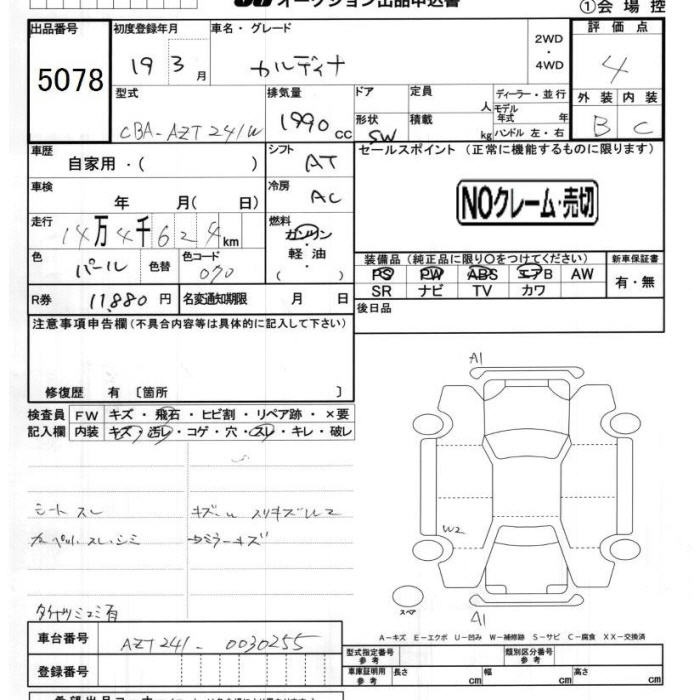 オークション出品申込書
①会場控
出品番号 初度登録年月 車名・グレード 評価点
5078 19 3月 カルディナ 2WD・4WD 4
型式 排気量 ドア 定員 人 ディーラー・並行 外装 内装
CBA-AZT241W 1990cc 形状 SW 積載 kg モデル年式 年 ハンドル 左・右 B C
車歴 シフト セールスポイント (正常に機能するものに限ります)
自家用・( ) AT
車検 冷房
年 月( 日) AC NOクレーム・売切
走行 燃料
14万4千624km ガソリン・軽油・( )
色 色コード 装備品(純正品に限り○をつけてください) 新車保証書
パール 色替 070 PS PW ABS エアB AW 有・無
SR ナビ TV カワ
R券 11,880円 名変通知期限 月 日 後日品
注意事項申告欄(不具合内容等は具体的に記入して下さい)
修復歴 有〔箇所 〕
検査員 FW キズ・飛石・ヒビ割・リペア跡・×要
記入欄 内装 キズ・汚レ・コゲ・穴・スレ・キレ・破レ
A1
シート スレ
W2
スペア
A1
A−キズ E−エクボ U−凹み W−補修跡 S−サビ C−腐食 XX−交換済
車台番号 AZT241-0030255 型式指定番号 参考 類別区分番号 参考
登録番号 車庫証明用 参考 長さ cm 幅 cm 高さ cm